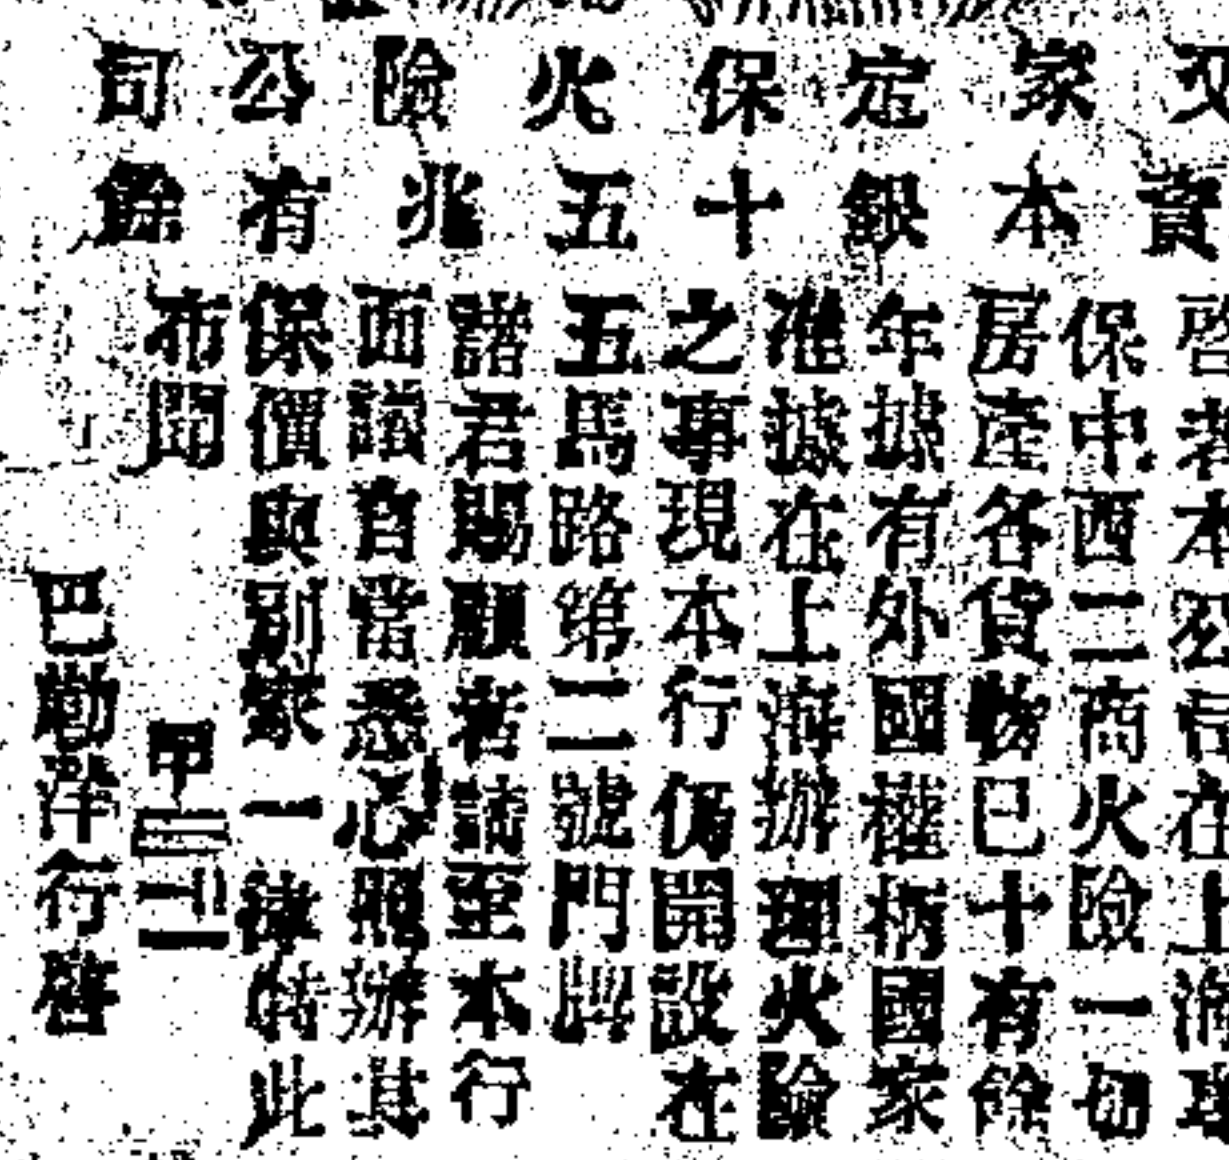 又家定保火險公司
資本銀十五兆有餘
啓者本公司在上海
保中西二商火險一切
房產各貨物已十有餘
年據有外國權柄國家
准據在上海辦理火險
之事現本行仍開設在
五馬路第二號門牌
諸君賜顧者請至本行
面議自當悉心照辦其
保價與別家一律特此
布聞
甲三二
巴勒洋行啓